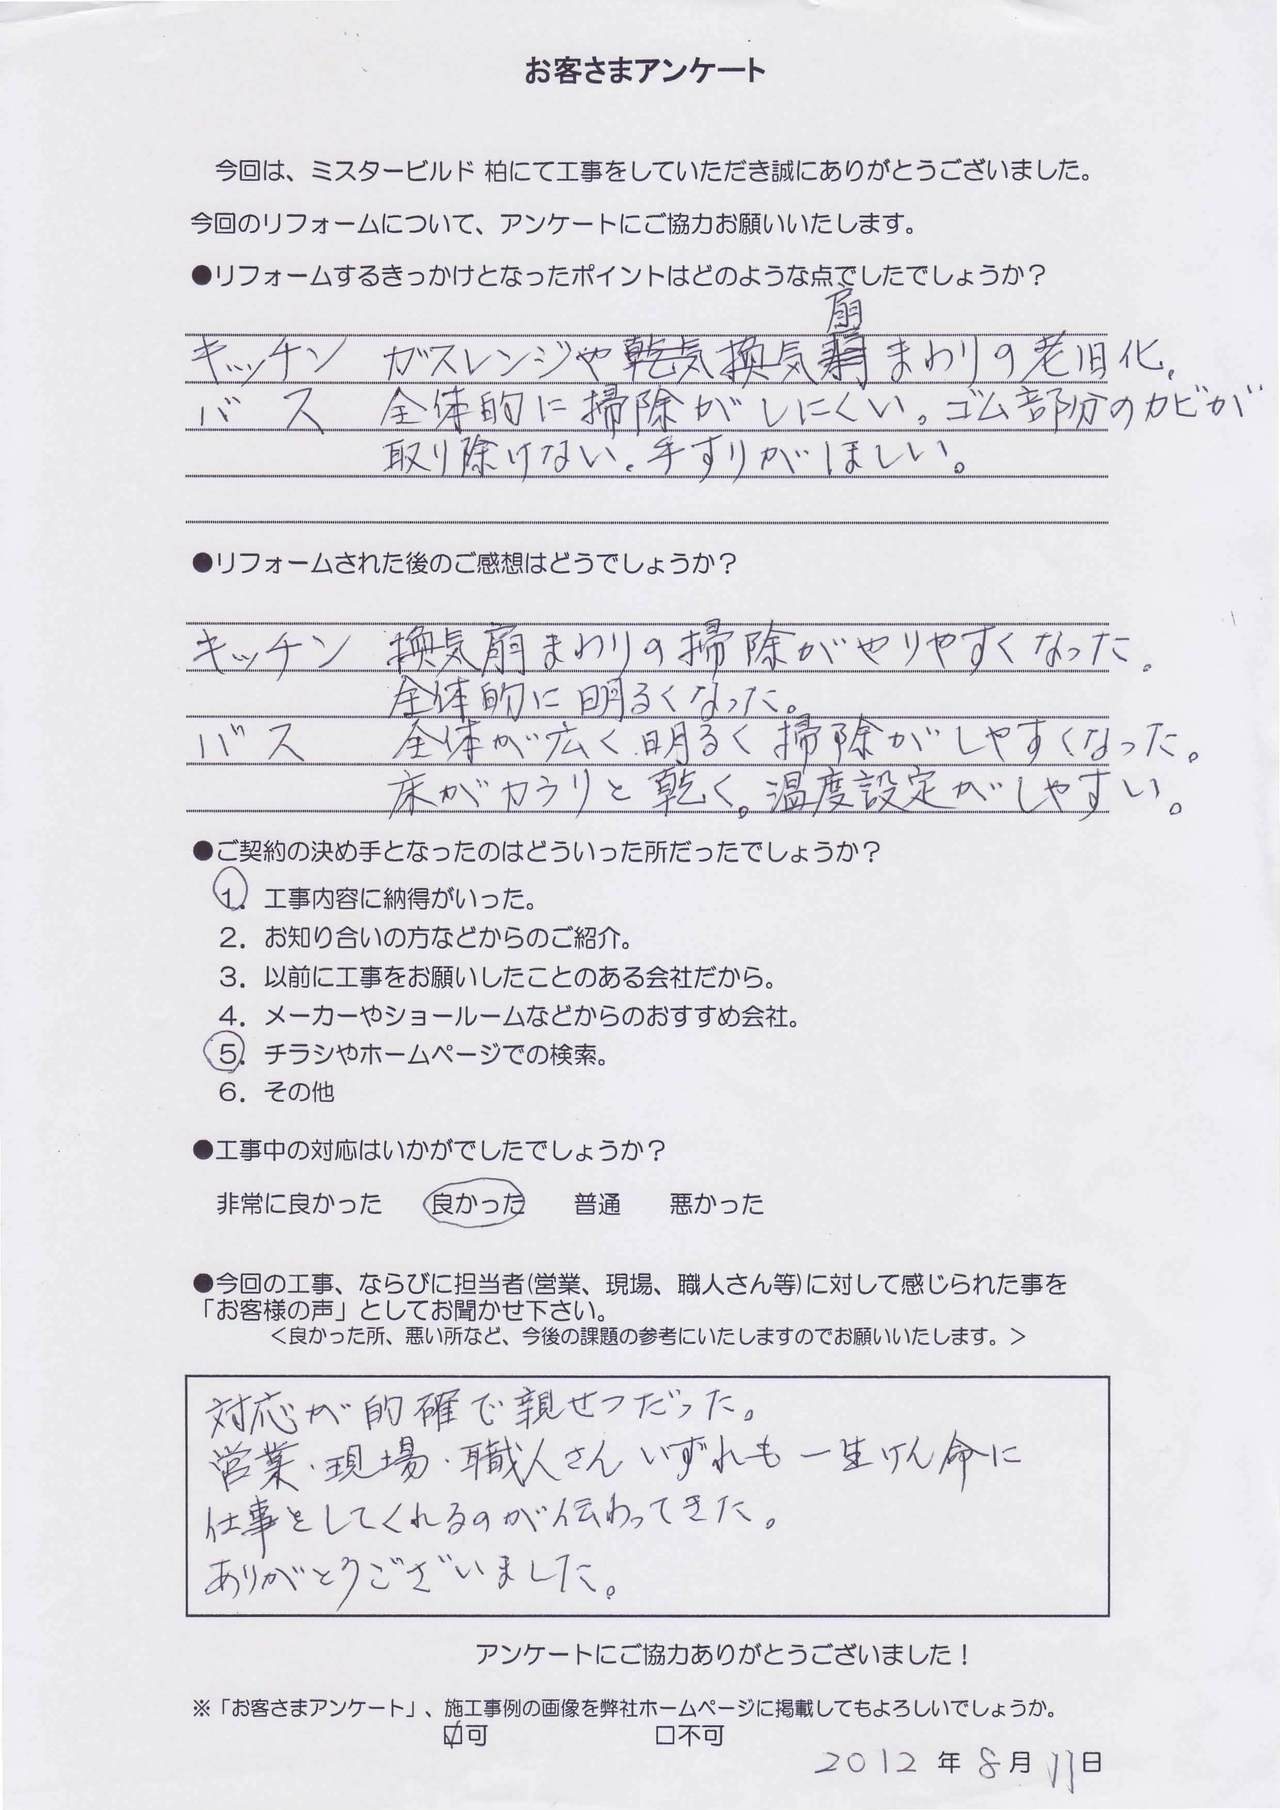 お客さまアンケート
今回は、ミスタービルド 柏にて工事をしていただき誠にありがとうございました。
今回のリフォームについて、アンケートにご協力お願いいたします。
●リフォームするきっかけとなったポイントはどのような点でしたでしょうか？
キッチン ガスレンジや換気扇まわりの老旧化。
バス 全体的に掃除がしにくい。ゴム部分のカビが
取り除けない。手すりがほしい。
●リフォームされた後のご感想はどうでしょうか？
キッチン 換気扇まわりの掃除がやりやすくなった。
全体的に明るくなった。
バス 全体が広く、明るく掃除がしやすくなった。
床がカラリと乾く。温度設定がしやすい。
●ご契約の決め手となったのはどういった所だったでしょうか？
1．工事内容に納得がいった。
2．お知り合いの方などからのご紹介。
3．以前に工事をお願いしたことのある会社だから。
4．メーカーやショールームなどからのおすすめ会社。
5．チラシやホームページでの検索。
6．その他
●工事中の対応はいかがでしたでしょうか？
非常に良かった 良かった 普通 悪かった
●今回の工事、ならびに担当者(営業、現場、職人さん等)に対して感じられた事を
「お客様の声」としてお聞かせ下さい。
＜良かった所、悪い所など、今後の課題の参考にいたしますのでお願いいたします。＞
対応が的確で親せつだった。
営業・現場・職人さんいずれも一生けん命に
仕事をしてくれるのが伝わってきた。
ありがとうございました。
アンケートにご協力ありがとうございました！
※「お客さまアンケート」、施工事例の画像を弊社ホームページに掲載してもよろしいでしょうか。
☑可 □不可
2012年8月11日